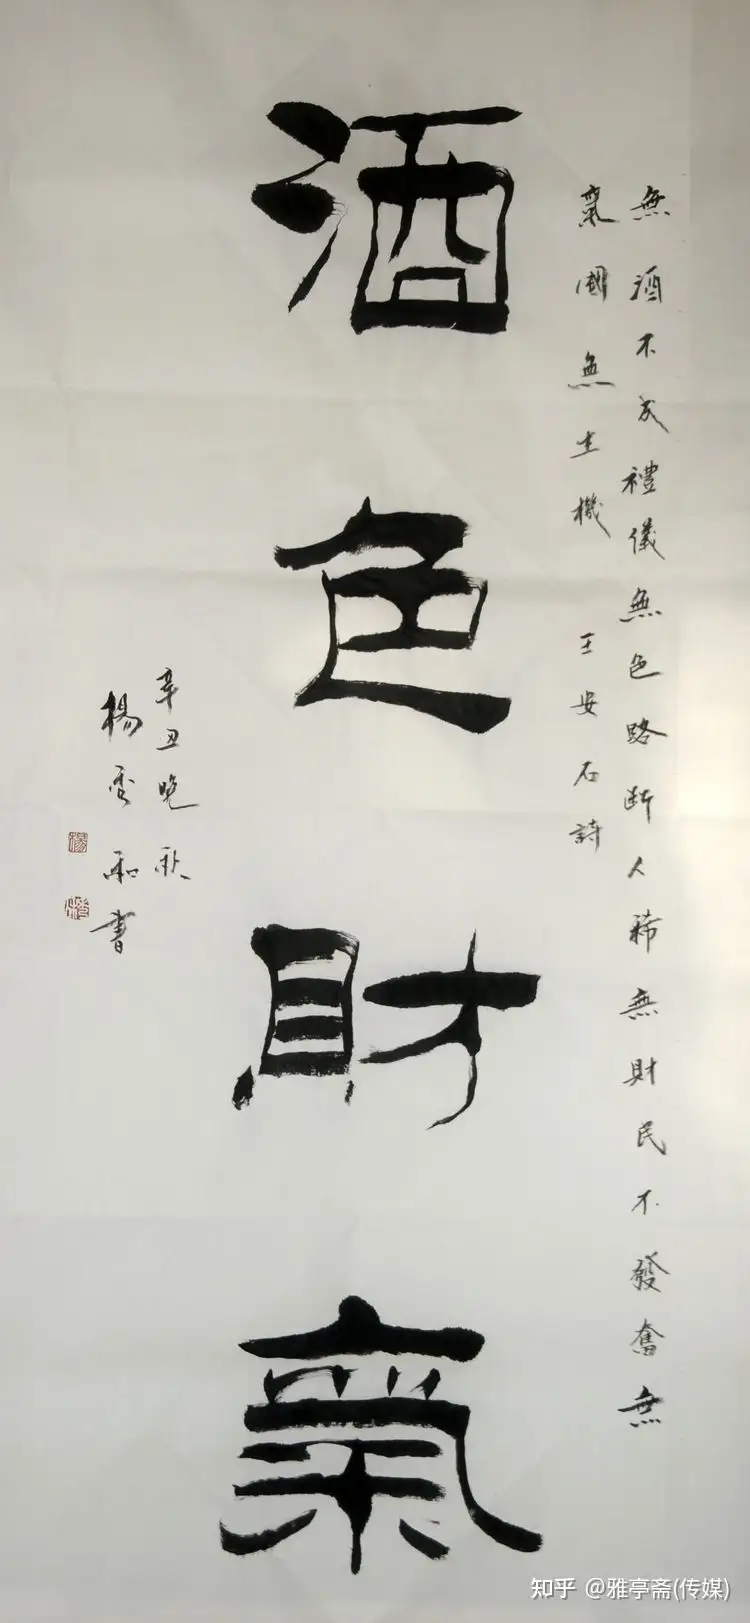 無酒不成禮儀無色路断人稀無財民不發奮無
氣國無生機 王安石詩
酒色財氣
辛丑晚秋
楊 和書
知乎 @雅亭斋(传媒)